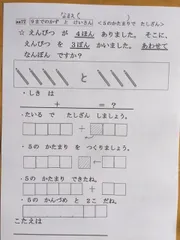 なまえ(　　　)
9までのかず と けいさん <5のかたまりで たしざん>
☆ えんぴつ が 4ほん ありました。 そこに、
えんぴつを 3ぼん かいました。 あわせて
なんぼん ですか?
と
・しき は
＋ ＝ ?
・たいる で たしざん しましょう。
＋
・5の かたまり を つくりましょう。
←
・5の かたまり できたね。
＋
・5の かんづめ と 2こ だね。
こたえは